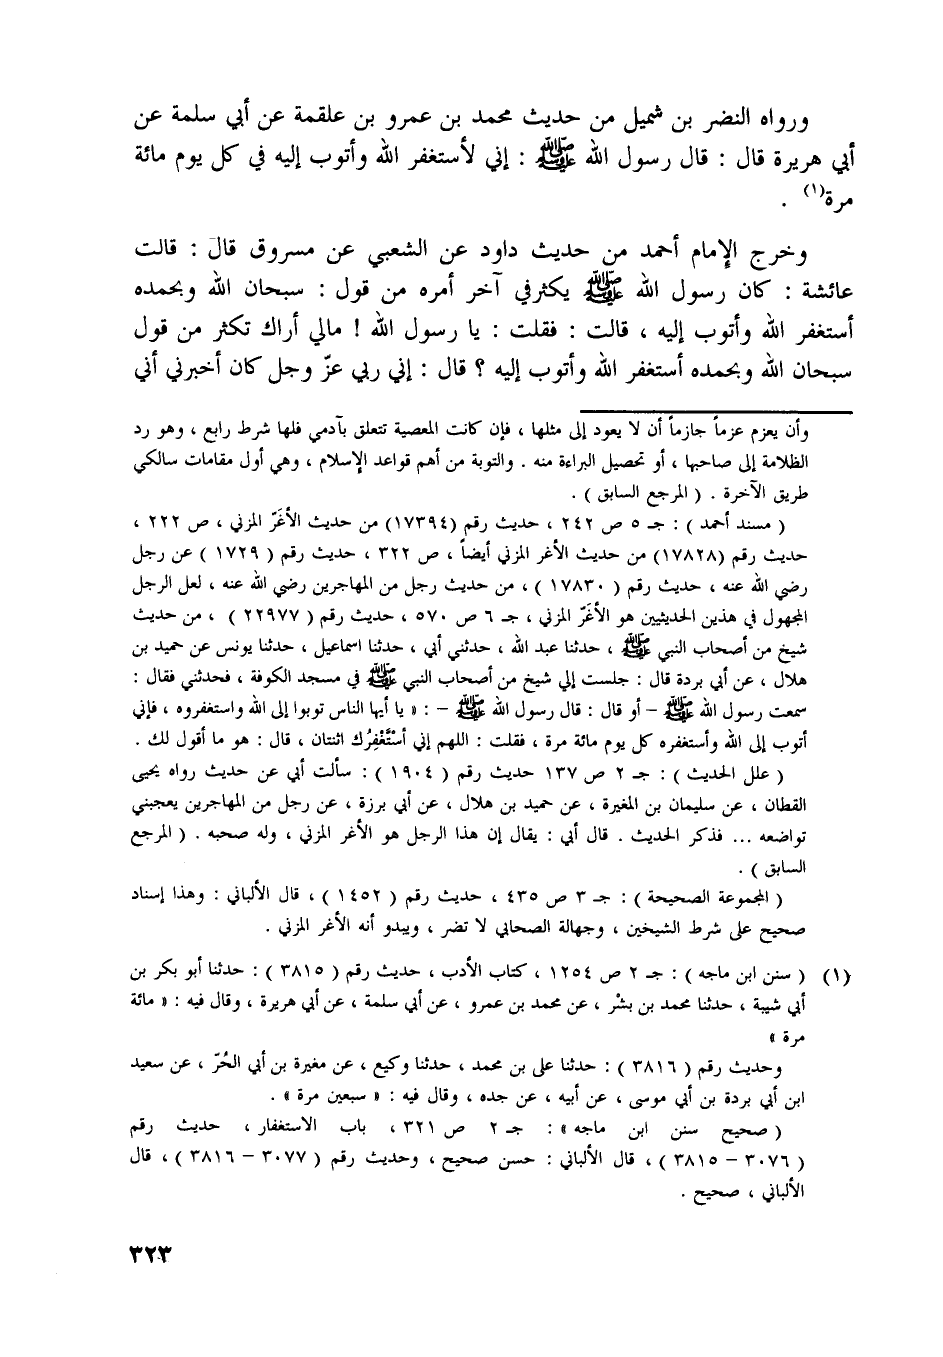 ورواه النضر بن شميل من حديث محمد بن عمرو بن علقمة عن أبي سلمة عن
أبي هريرة قال : قال رسول الله ﷺ : إني لأستغفر الله وأتوب إليه في كل يوم مائة
مرة(١) .
وخرج الإمام أحمد من حديث داود عن الشعبي عن مسروق قال : قالت
عائشة : كان رسول الله ﷺ يكثر في آخر أمره من قول : سبحان الله وبحمده
أستغفر الله وأتوب إليه ، قالت : فقلت : يا رسول الله ! مالي أراك تكثر من قول
سبحان الله وبحمده أستغفر الله وأتوب إليه ؟ قال : إني ربي عزّ وجل كان أخبرني أني
وأن يعزم عزماً جازماً أن لا يعود إلى مثلها ، فإن كانت المعصية تتعلق بآدمي فلها شرط رابع ، وهو رد
الظلامة إلى صاحبها ، أو تحصيل البراءة منه . والتوبة من أهم قواعد الإسلام ، وهي أول مقامات سالكي
طريق الآخرة . ( المرجع السابق ) .
( مسند أحمد ) : جـ ٥ ص ٢٤٢ ، حديث رقم (١٧٣٩٤) من حديث الأغَرّ المزني ، ص ٢٢٢ ،
حديث رقم (١٧٨٢٨) من حديث الأغر المزني أيضاً ، ص ٣٢٢ ، حديث رقم ( ١٧٢٩ ) عن رجل
رضي الله عنه ، حديث رقم ( ١٧٨٣٠ ) ، من حديث رجل من المهاجرين رضي الله عنه ، لعل الرجل
المجهول في هذين الحديثين هو الأغَرّ المزني ، جـ ٦ ص ٥٧٠ ، حديث رقم ( ٢٢٩٧٧ ) ، من حديث
شيخ من أصحاب النبي ﷺ ، حدثنا عبد الله ، حدثني أبي ، حدثنا اسماعيل ، حدثنا يونس عن حميد بن
هلال ، عن أبي بردة قال : جلست إلي شيخ من أصحاب النبي ﷺ في مسجد الكوفة ، فحدثني فقال :
سمعت رسول الله ﷺ – أو قال : قال رسول الله ﷺ – : « يا أيها الناس توبوا إلى الله واستغفروه ، فإني
أتوب إلى الله وأستغفره كل يوم مائة مرة ، فقلت : اللهم إني أسْتَغْفِرُك اثنتان ، قال : هو ما أقول لك .
( علل الحديث ) : جـ ٢ ص ١٣٧ حديث رقم ( ١٩٠٤ ) : سألت أبي عن حديث رواه يحيى
القطان ، عن سليمان بن المغيرة ، عن حميد بن هلال ، عن أبي برزة ، عن رجل من المهاجرين يعجبني
تواضعه ... فذكر الحديث . قال أبي : يقال إن هذا الرجل هو الأغر المزني ، وله صحبه . ( المرجع
السابق ) .
( المجموعة الصحيحة ) : جـ ٣ ص ٤٣٥ ، حديث رقم ( ١٤٥٢ ) ، قال الألباني : وهذا إسناد
صحيح على شرط الشيخين ، وجهالة الصحابي لا تضر ، ويبدو أنه الأغر المزني .
(١) ( سنن ابن ماجه ) : جـ ٢ ص ١٢٥٤ ، كتاب الأدب ، حديث رقم ( ٣٨١٥ ) : حدثنا أبو بكر بن
أبي شيبة ، حدثنا محمد بن بشْر ، عن محمد بن عمرو ، عن أبي سلمة ، عن أبي هريرة ، وقال فيه : « مائة
مرة »
وحديث رقم ( ٣٨١٦ ) : حدثنا على بن محمد ، حدثنا وكيع ، عن مغيرة بن أبي الحُرّ ، عن سعيد
ابن أبي بردة بن أبي موسى ، عن أبيه ، عن جده ، وقال فيه : « سبعين مرة » .
( صحيح سنن ابن ماجه » : جـ ٢ ص ٣٢١ ، باب الاستغفار ، حديث رقم
( ٣٠٧٦ – ٣٨١٥ ) ، قال الألباني : حسن صحيح ، وحديث رقم ( ٣٠٧٧ – ٣٨١٦ ) ، قال
الألباني ، صحيح .
٣٢٣